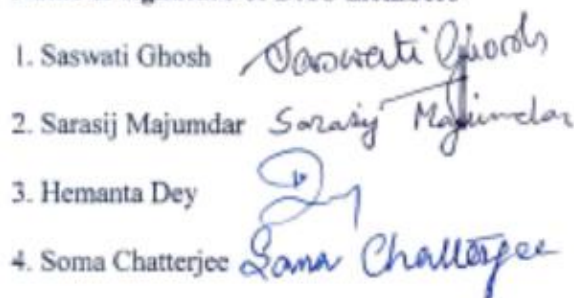 1. Saswati Ghosh Saswati Ghosh
2. Sarasij Majumdar Sarasij Majumdar
3. Hemanta Dey
4. Soma Chatterjee Soma Chatterjee